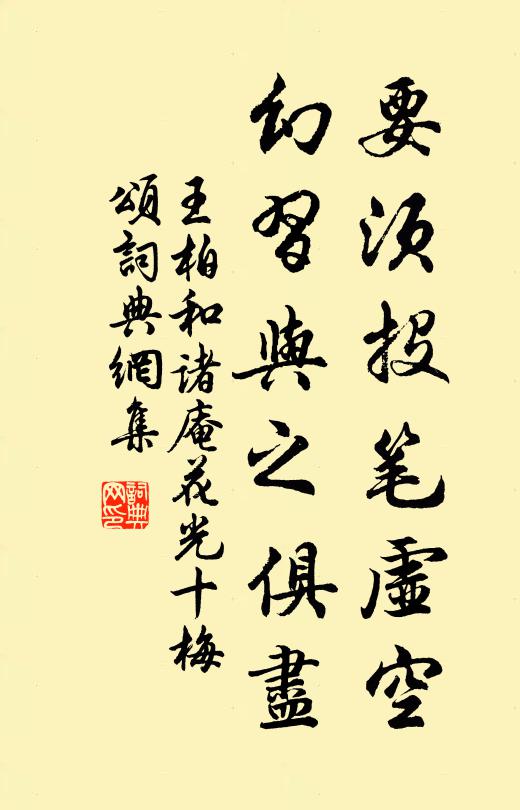 要須投笔虛空
幻習與之俱盡
王柏和諸庵花光十梅
頌詞典網集
詞典
网印